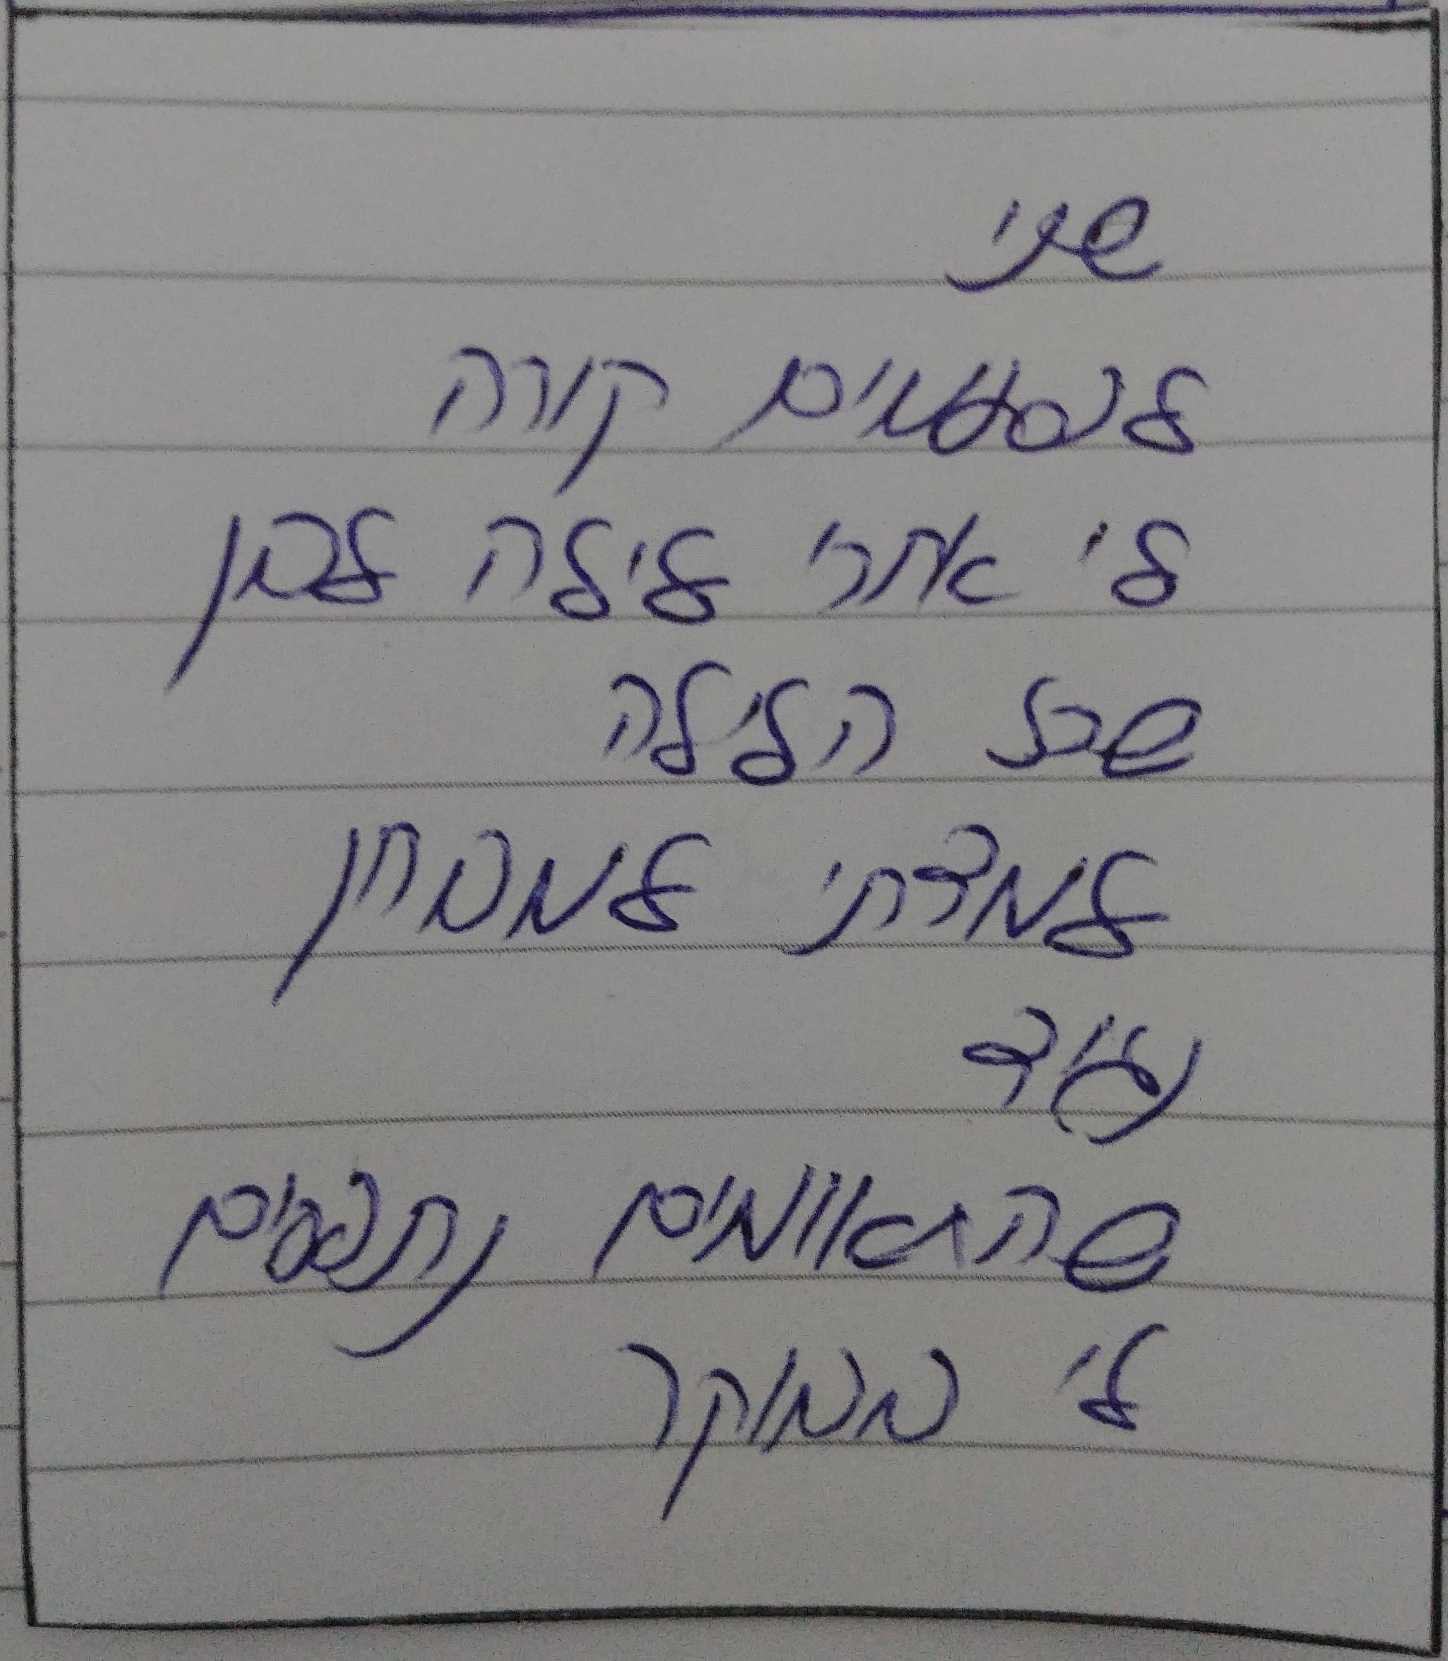 שני
לפעמים קורה
לי אחרי לילה לבן
שכל הלילה
למדתי למבחן
עוד
שהתאומים נתפסים
לי בבוקר